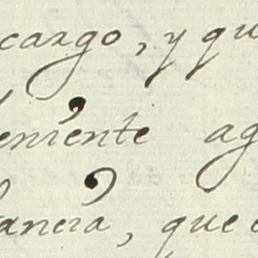 cargo, y qu
eniente ag
anera, que